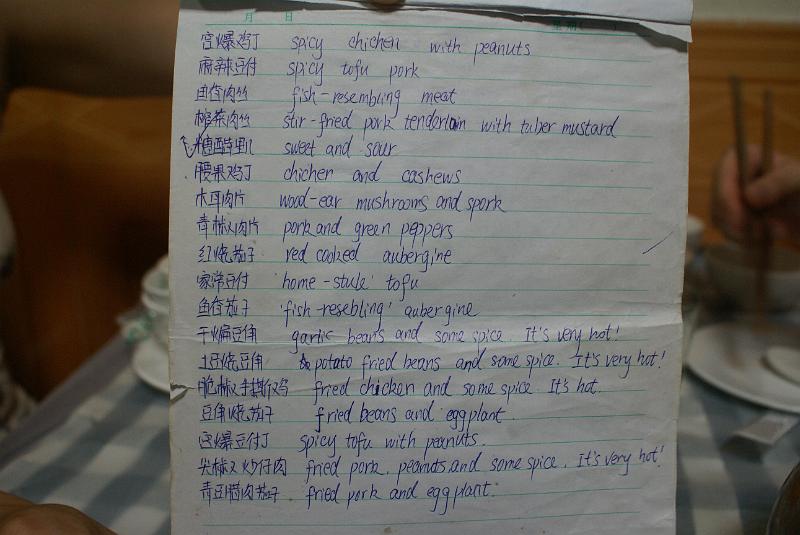 月 日 星期
宫爆鸡丁 spicy chichen with peanuts
麻辣豆付 spicy tofu pork
鱼香肉丝 fish-resembling meat
榨菜肉丝 stir-fried pork tenderloin with tuber mustard
糖醋里几 sweet and sour
腰果鸡丁 chichen and cashews
木耳肉片 wood-ear mushrooms and spork
青椒肉片 pork and green peppers
红烧茄子 red cooked aubergine
家常豆付 'home-stule' tofu
鱼香茄子 'fish-resebling' aubergine
干煸豆角 garlic beans and some spice. It's very hot!
土豆烧豆角 potato fried beans and some spice. It's very hot!
脆椒手撕鸡 fried chicken and some spice It's hot.
豆角烧茄子 fried beans and eggplant.
宫爆豆付丁 spicy tofu with peanuts.
尖椒炒仔肉 fried pork, peanuts and some spice. It's very hot!
青豆腊肉茄子 fried pork and eggplant.